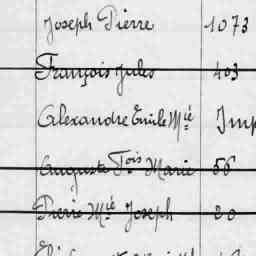 Joseph Pierre 1073
François Jules 403
Alexandre Emile Mie Imp
Auguste Fois Marie 56
Pierre Mie Joseph 20